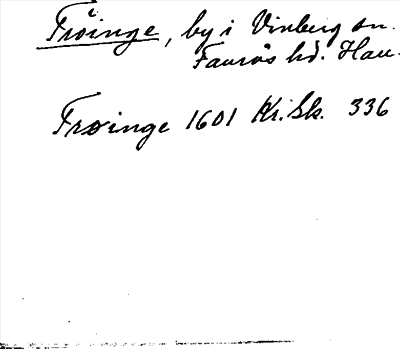 Fröinge, by i Vinberg sn.
Faurås hd. Hall.
Frøinge 1601 Kr. Sk. 336